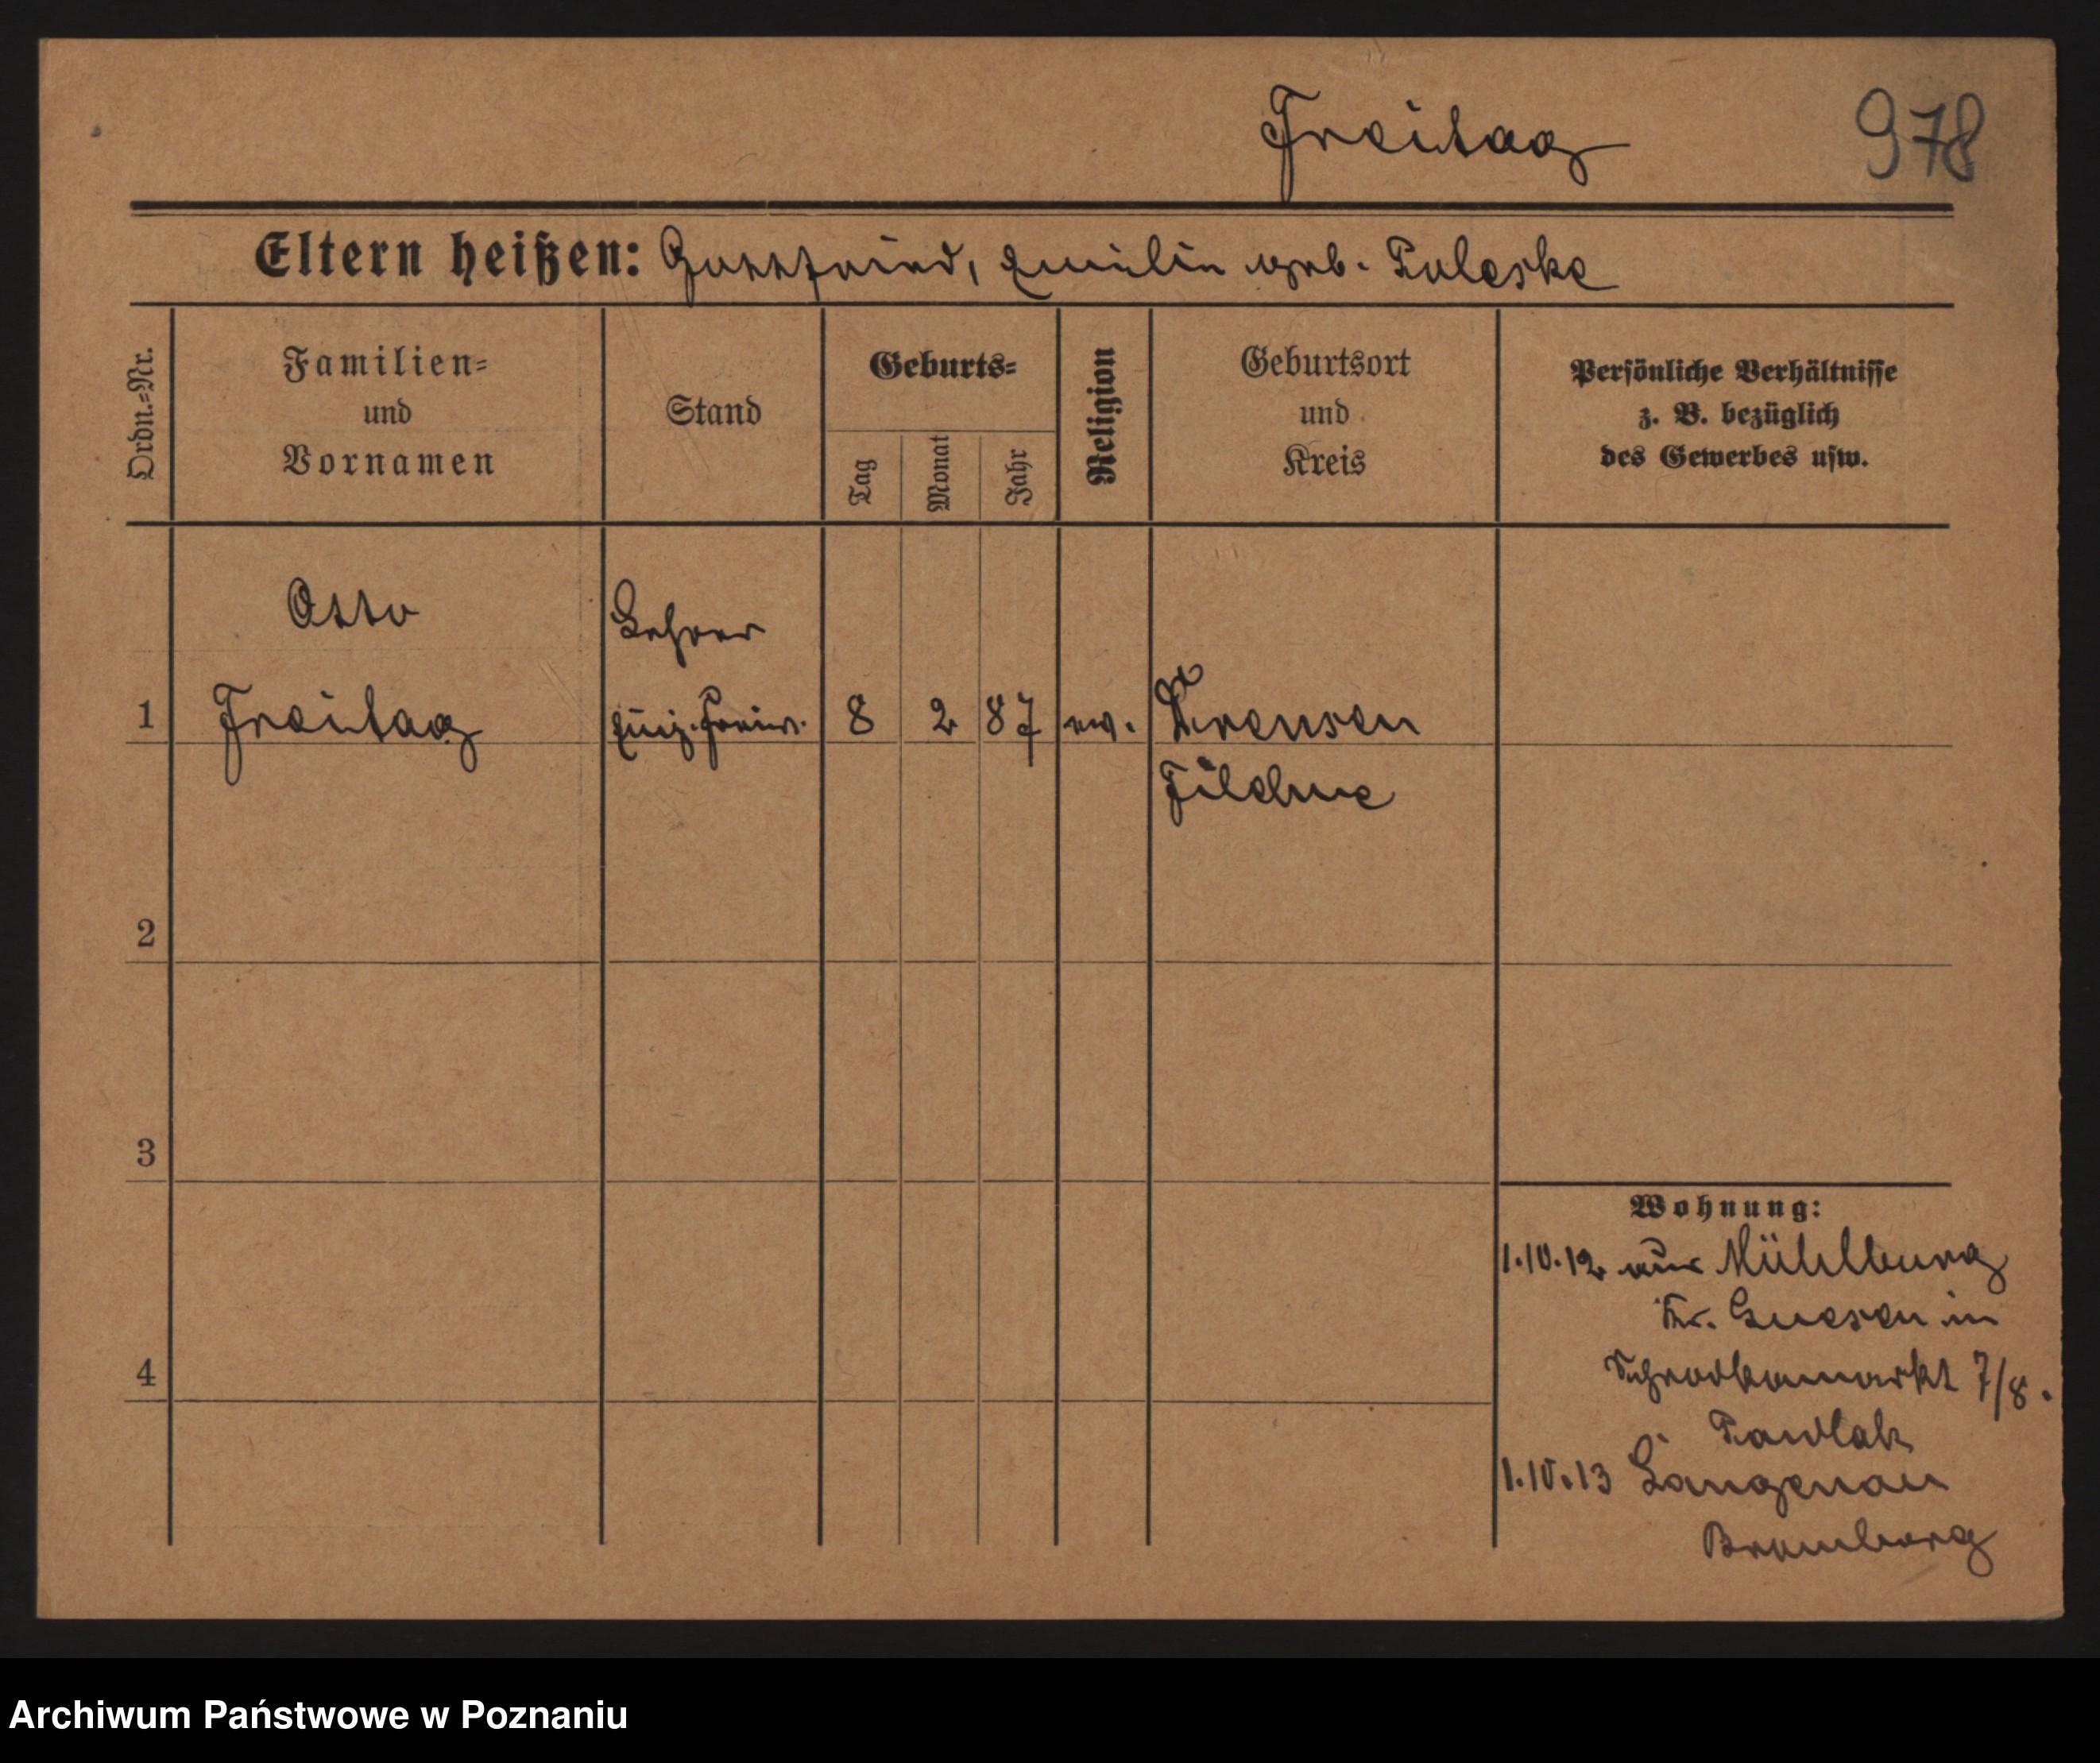 Freitag
978
Eltern heißen: Gottfried, Emilie geb. Poleske
Ordn.=Nr.
Familien=
und
Vornamen
Stand
Geburts=
Tag
Monat
Jahr
Religion
Geburtsort
und
Kreis
Persönliche Verhältnisse
z. B. bezüglich
des Gewerbes usw.
Otto
Lehrer
1
Freitag
Einj. Freiw.
8
2
87
ev.
Filehne
2
3
4
Wohnung:
1.10.12 aus Mühlburg
Kr. Gnesen in
Schrodkamarkt 7/8.
Pawlak
1.10.13 Langenau
Bromberg
Archiwum Państwowe w Poznaniu